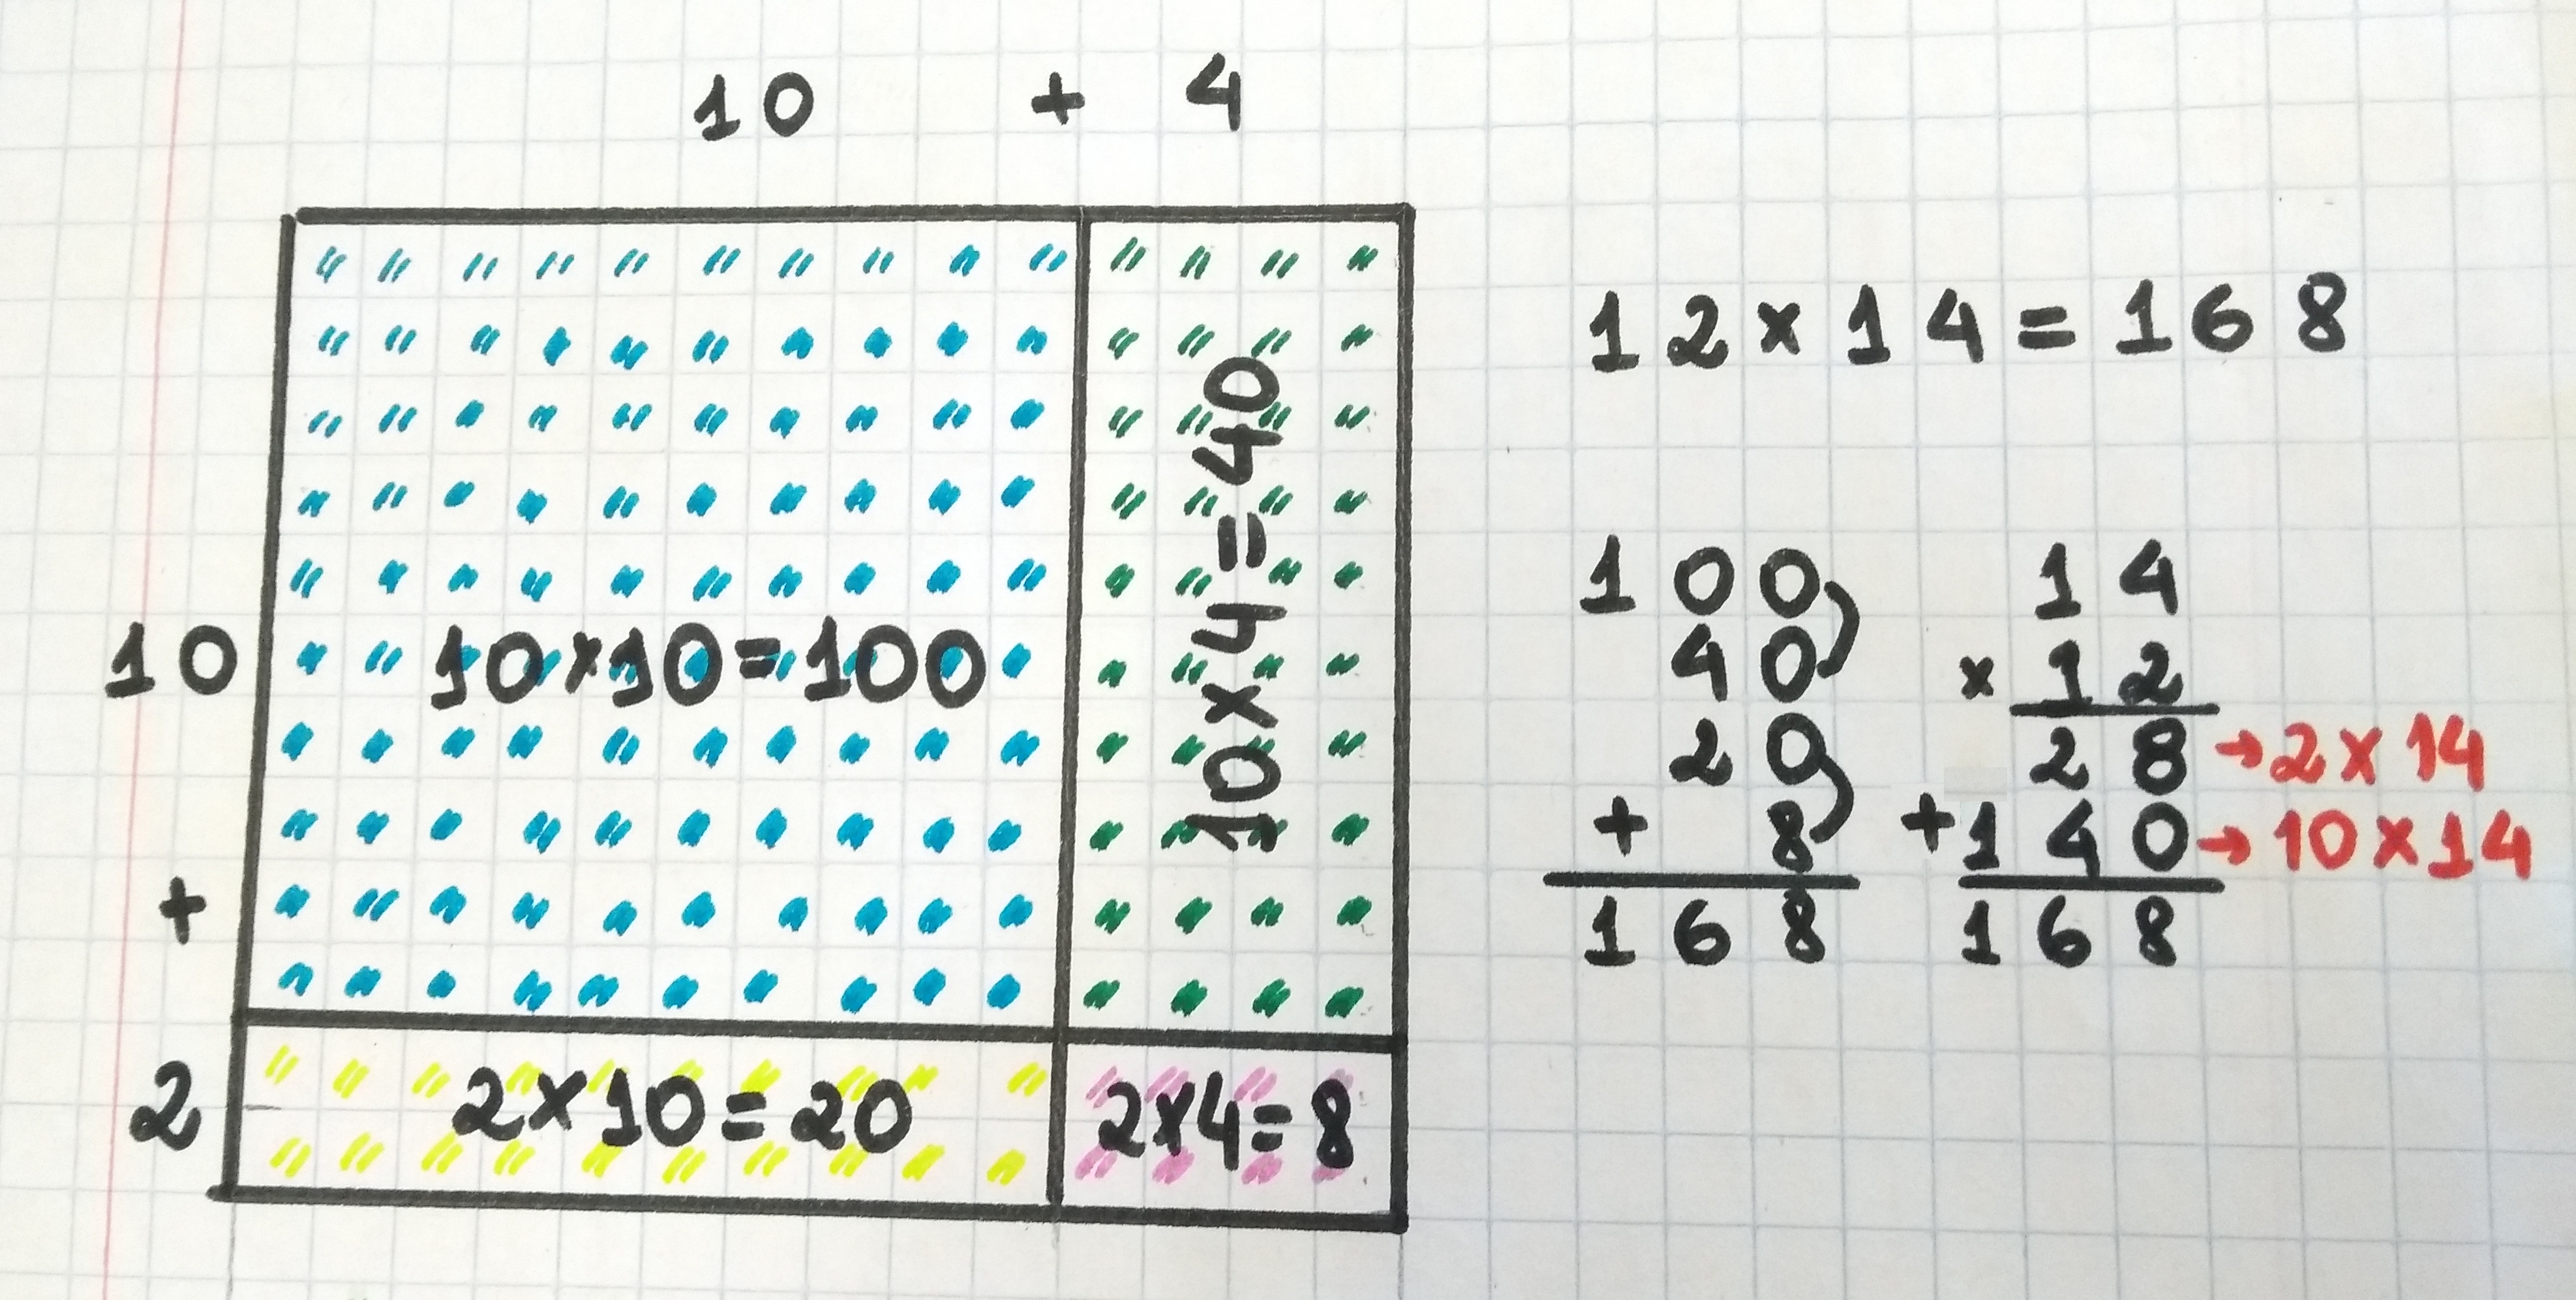 10 + 4
10
+
2
10×10=100
10×4=40
2×10=20
2×4=8
12×14=168
100
40
20
+ 8
168
14
× 12
28 → 2×14
+140 → 10×14
168